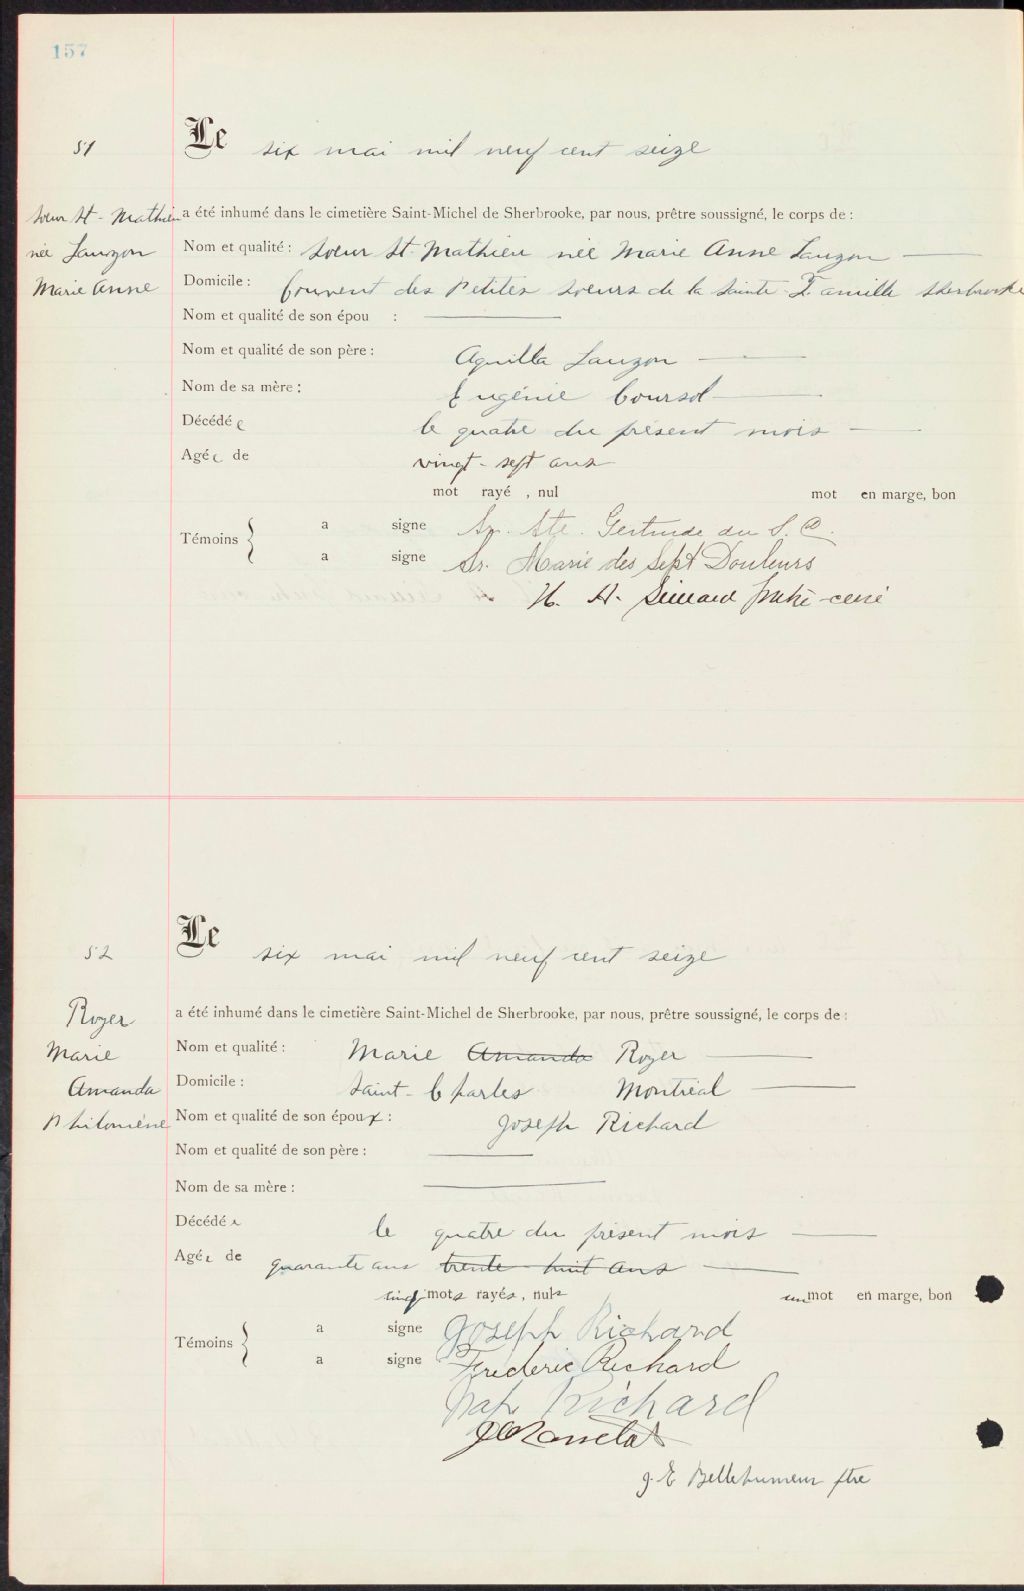 157
51
Le six mai mil neuf cent seize
Soeur St-Mathieu
née Lauzon
Marie Anne
a été inhumé dans le cimetière Saint-Michel de Sherbrooke, par nous, prêtre soussigné, le corps de :
Nom et qualité : Soeur St-Mathieu née Marie Anne Lauzon
Domicile : Couvent des Petites Soeurs de la Sainte-Famille Sherbrooke
Nom et qualité de son épou :
Nom et qualité de son père : Aquilla Lauzon
Nom de sa mère : Eugénie Coursol
Décédée le quatre du présent mois
Agée de vingt-sept ans
mot rayé , nul mot en marge, bon
Témoins { a signé Sr. Ste. Gertrude du S. C.
a signé Sr. Marie des Sept Douleurs
H. A. Simard ptre-curé
52
Le six mai mil neuf cent seize
Royer
Marie
Amanda
Philomène
a été inhumé dans le cimetière Saint-Michel de Sherbrooke, par nous, prêtre soussigné, le corps de :
Nom et qualité : Marie Amanda Royer
Domicile : Saint-Charles Montréal
Nom et qualité de son époux : Joseph Richard
Nom et qualité de son père :
Nom de sa mère :
Décédée le quatre du présent mois
Agée de quarante ans trente-huit ans
cinq mots rayés, nuls un mot en marge, bon
Témoins { a signé Joseph Richard
a signé Frédéric Richard
Nap Richard
J. E. Bellehumeur ptre